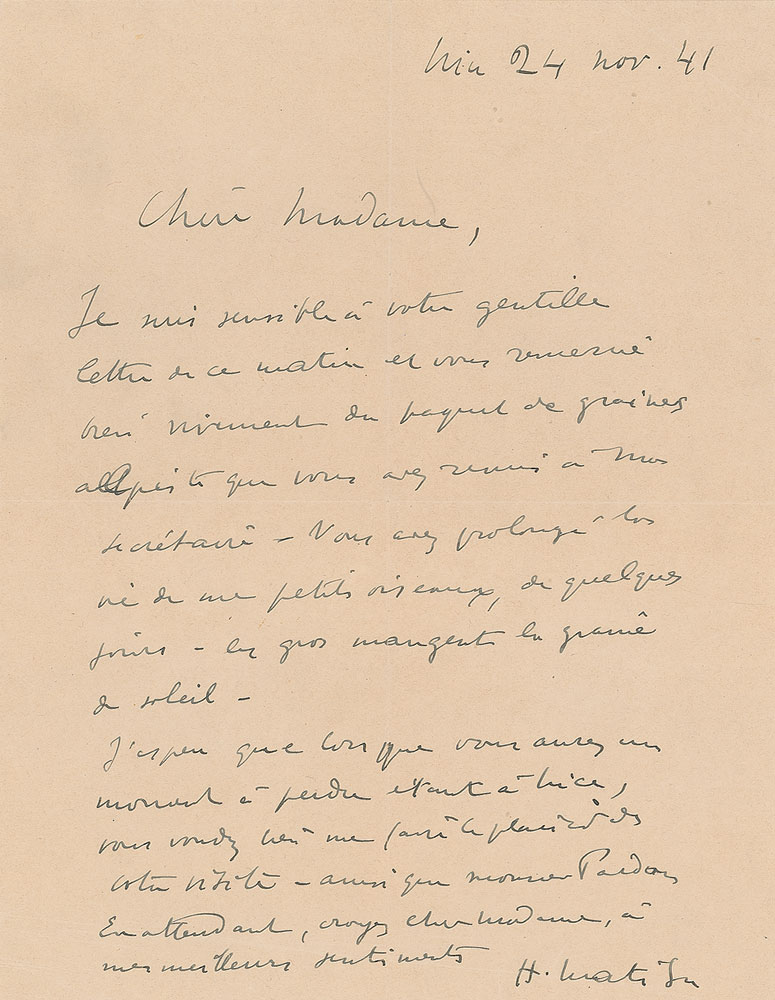 Nice 24 nov. 41
Chère Madame,
Je suis sensible à votre gentille
lettre de ce matin et vous remercie
bien vivement du paquet de graines
alpiste que vous avez remis à ma
secrétaire – Vous avez prolongé la
vie de mes petits oiseaux, de quelques
jours – les gros mangent la graine
de soleil –
J'espère que lorsque vous aurez un
moment à perdre étant à Nice,
vous voudrez bien me faire le plaisir de
votre visite – ainsi que monsieur
En attendant, croyez chère Madame, à
mes meilleurs sentiments
H. Matisse